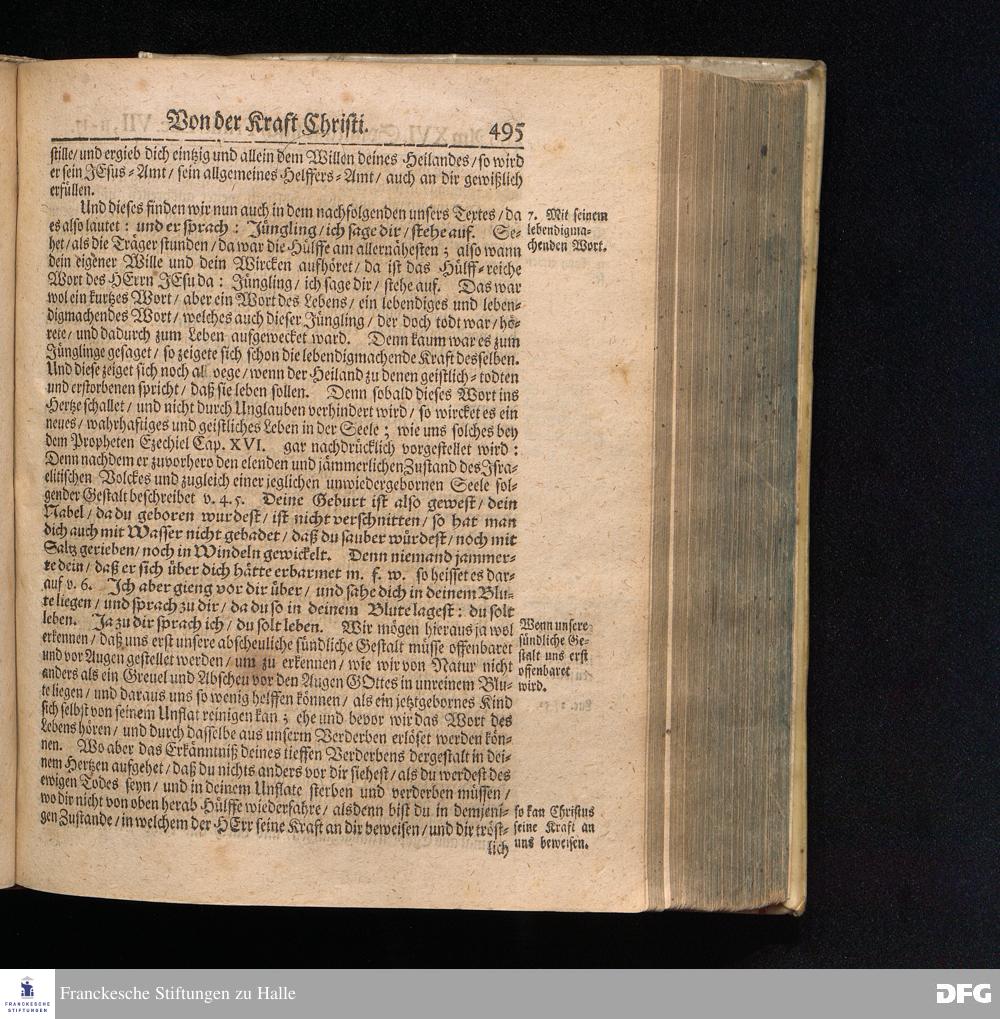 Von der Kraft Christi. 495
stille/ und ergieb dich eintzig und allein dem Willen deines Heilandes/ so wird
er sein JEsus-Amt/ sein allgemeines Helffers-Amt/ auch an dir gewißlich
erfüllen.
Und dieses finden wir nun auch in dem nachfolgenden unsers Textes/ da
es also lautet: und er sprach: Jüngling/ ich sage dir/ stehe auf. Se-
het/ als die Träger stunden/ da war die Hülffe am allernähesten; also wann
dein eigener Wille und dein Wircken aufhöret/ da ist das Hülff-reiche
Wort des HErrn JEsu da: Jüngling/ ich sage dir/ stehe auf. Das war
wol ein kurtzes Wort/ aber ein Wort des Lebens/ ein lebendiges und leben-
digmachendes Wort/ welches auch dieser Jüngling/ der doch todt war/ hö-
rete/ und dadurch zum Leben aufgewecket ward. Denn kaum war es zum
Jünglinge gesaget/ so zeigete sich schon die lebendigmachende Kraft desselben.
Und diese zeiget sich noch wenn der Heiland zu denen geistlich-todten
und erstorbenen spricht/ daß sie leben sollen. Denn sobald dieses Wort ins
Hertze schallet/ und nicht durch Unglauben verhindert wird/ so wircket es ein
neues/ wahrhaftiges und geistliches Leben in der Seele; wie uns solches bey
dem Propheten Ezechiel Cap. XVI. gar nachdrücklich vorgestellet wird:
Denn nachdem er zuvorhero den elenden und jämmerlichen Zustand des Isra-
elitischen Volckes und zugleich einer jeglichen unwiedergebornen Seele fol-
gender Gestalt beschreibet v. 4. 5. Deine Geburt ist also gewest/ dein
Nabel/ da du geboren wurdest/ ist nicht verschnitten/ so hat man
dich auch mit Wasser nicht gebadet/ daß du sauber würdest/ noch mit
Saltz gerieben/ noch in Windeln gewickelt. Denn niemand jammer-
te dein/ daß er sich über dich hätte erbarmet m. f. w. so heisset es dar-
auf v. 6. Ich aber gieng vor dir über/ und sahe dich in deinem Blu-
te liegen/ und sprach zu dir/ da du so in deinem Blute lagest: du solt
leben. Ja zu dir sprach ich/ du solt leben. Wir mögen hieraus ja wol
erkennen/ daß uns erst unsere abscheuliche sündliche Gestalt müsse offenbaret
und vor Augen gestellet werden/ um zu erkennen/ wie wir von Natur nicht
anders als ein Greuel und Abscheu vor den Augen GOttes in unreinem Blu-
te liegen/ und daraus uns so wenig helffen können/ als ein jetztgebornes Kind
sich selbst von seinem Unflat reinigen kan; ehe und bevor wir das Wort des
Lebens hören/ und durch dasselbe aus unserm Verderben erlöset werden kön-
nen. Wo aber das Erkänntniß deines tieffen Verderbens dergestalt in dei-
nem Hertzen aufgehet/ daß du nichts anders vor dir siehest/ als du werdest des
ewigen Todes seyn/ und in deinem Unflate sterben und verderben müssen/
wo dir nicht von oben herab Hülffe wiederfahre/ alsdenn bist du in demjeni-
gen Zustande/ in welchem der HErr seine Kraft an dir beweisen/ und dir tröst-
lich
7. Mit seinem
lebendigma-
chenden Wort.
Wenn unsere
sündliche Ge-
stalt uns erst
offenbaret
wird.
so kan Christus
seine Kraft an
uns beweisen.
FRANCKESCHE
STIFTUNGEN
Franckesche Stiftungen zu Halle
DFG